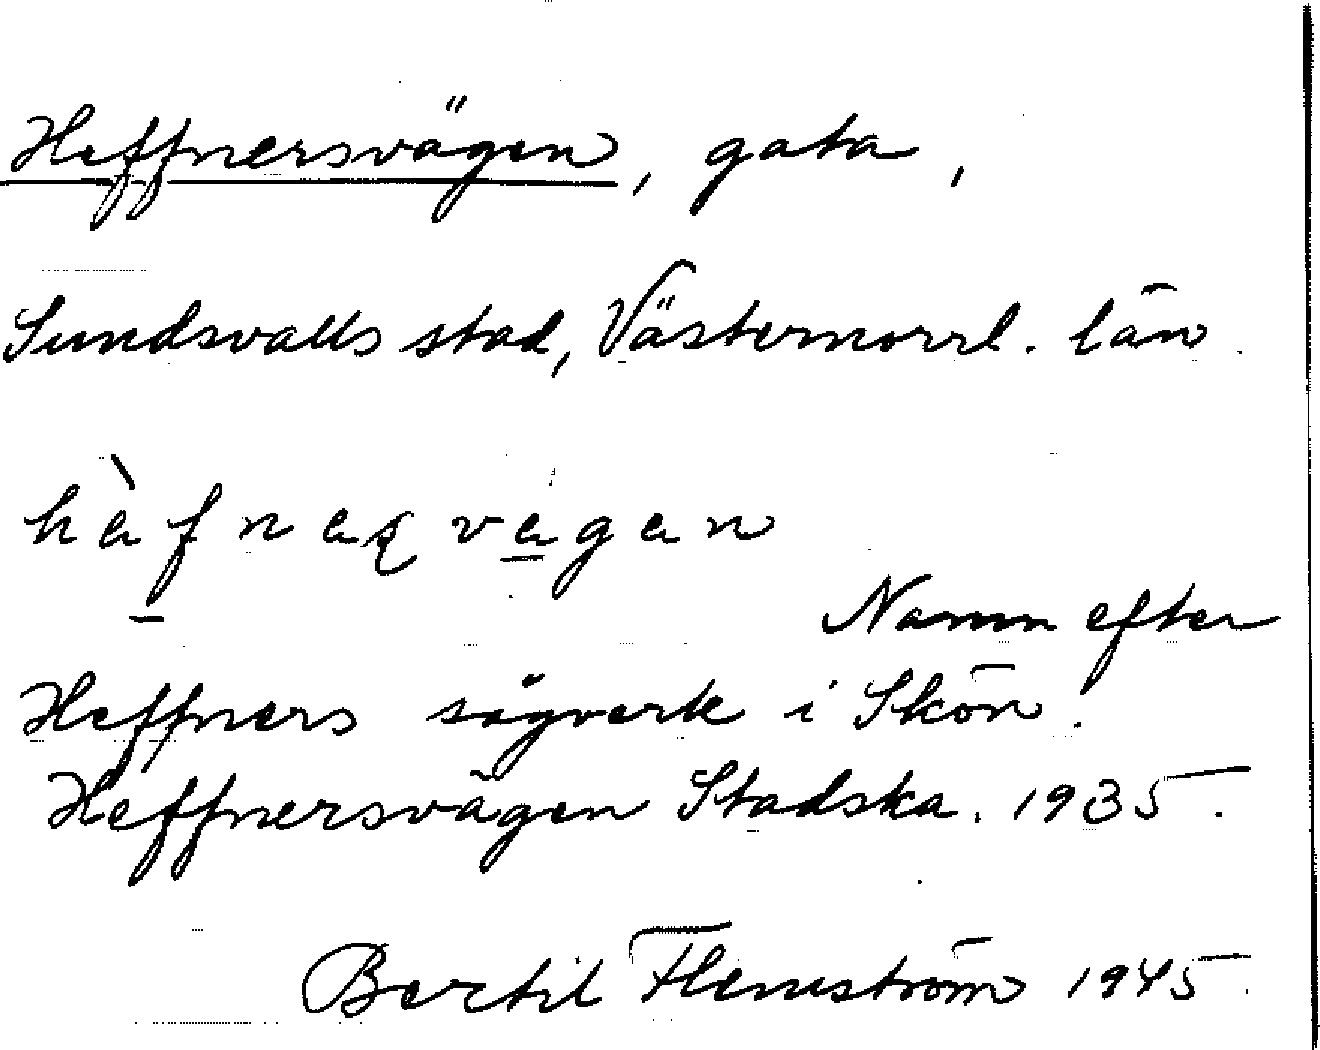 Heffnersvägen, gata,
Sundsvalls stad, Västernorrl. län.
hàfneʂvägen
Namn efter
Heffners sågverk i Skön.
Heffnersvägen Stadska. 1935.
Bertil Flemström 1945.